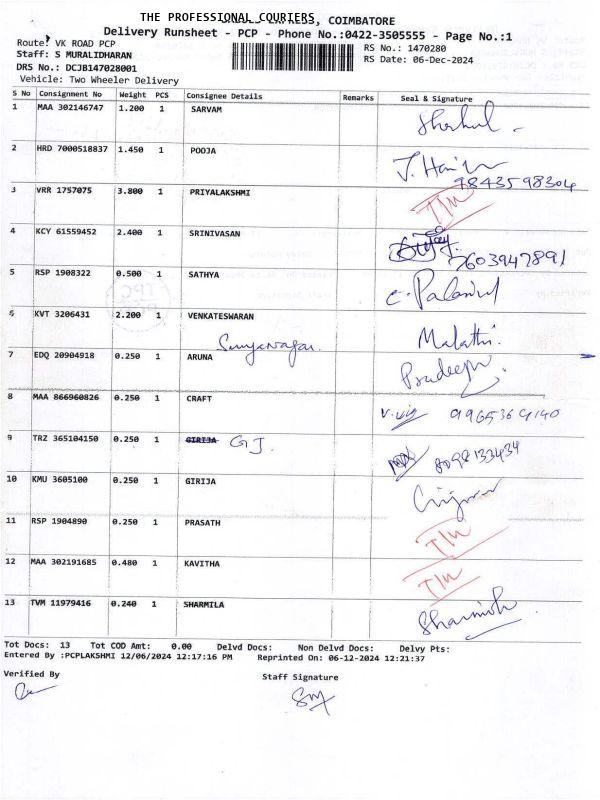 THE PROFESSIONAL COURIERS
COIMBATORE
Delivery Runsheet - PCP - Phone No.:0422-3505555 - Page No.:1
Route: VK ROAD PCP
RS No.: 1470280
Staff: S MURALIDHARAN
RS Date: 06-Dec-2024
DRS No.: DCJB147028001
Vehicle: Two Wheeler Delivery
S No Consignment No Weight PCS Consignee Details Remarks Seal & Signature
1 MAA 302146747 1.200 1 SARVAM
2 HRD 7000518837 1.450 1 POOJA
9843598304
3 VRR 1757075 3.800 1 PRIYALAKSHMI
4 KCY 61559452 2.400 1 SRINIVASAN
7603947891
5 RSP 1908322 0.500 1 SATHYA
6 KVT 3206431 2.200 1 VENKATESWARAN Malathi
7 EDQ 20904918 0.250 1 ARUNA Pradeep
8 MAA 866960826 0.250 1 CRAFT
9 TRZ 365104150 0.250 1 GIRIJA GJ 8098133434
10 KMU 3605100 0.250 1 GIRIJA
11 RSP 1904890 0.250 1 PRASATH
12 MAA 302191685 0.480 1 KAVITHA
13 TVM 11979416 0.240 1 SHARMILA
Tot Docs: 13 Tot COD Amt: 0.00 Delvd Docs: Non Delvd Docs: Delvy Pts:
Entered By :PCPLAKSHMI 12/06/2024 12:17:16 PM Reprinted On: 06-12-2024 12:21:37
Verified By
Staff Signature